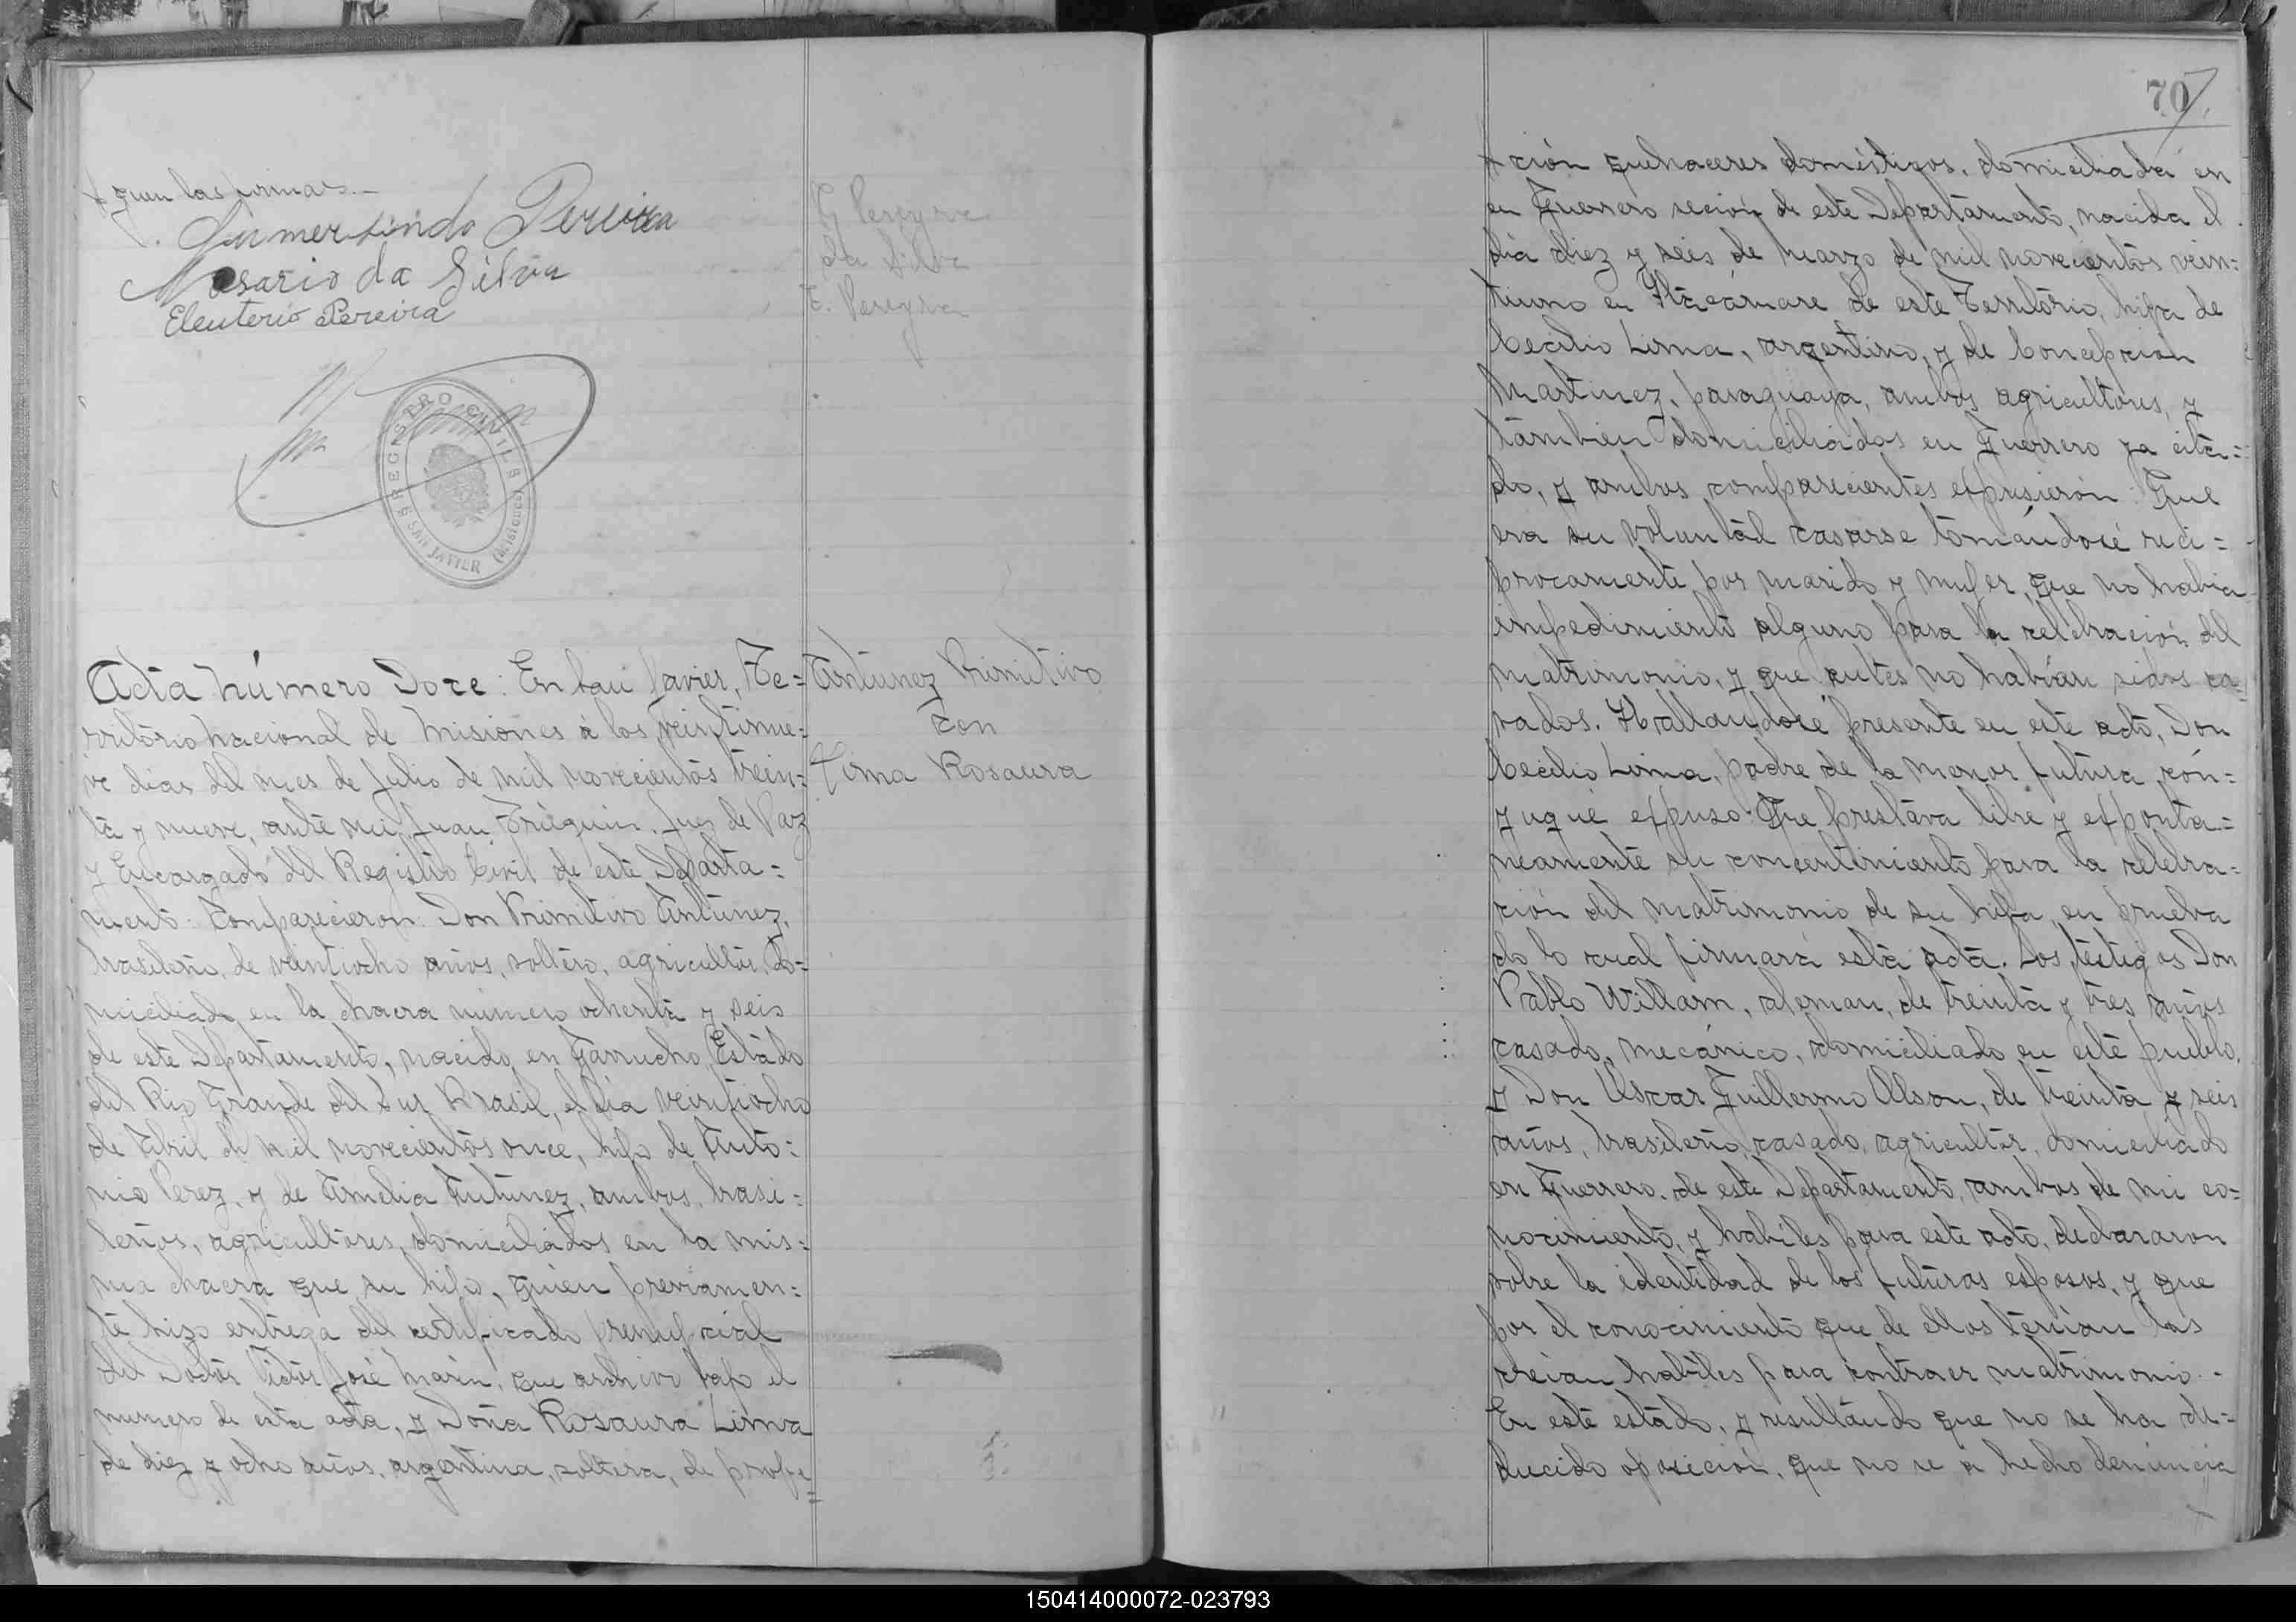 guen las firmas.—
Gumersindo Pereira
Rosario da Silva
Eleuterio Pereira
G Pereyra
da Silva
E. Pereyra
REGISTRO CIVIL
SAN JAVIER (Misiones)
Acta número Doce: En San Javier, Te=
rritorio Nacional de Misiones á los veintinue=
ve dias del mes de Julio de mil novecientos trein=
ta y nueve, ante mi, Juan, Juez de Paz
y Encargado del Registro Civil de este Departa=
mento: Comparecieron: Don Primitivo Antunez,
brasileño, de veintiocho años, soltero, agricultor, do=
miciliado en la chacra número ochenta y seis
de este Departamento, nacido en Garrucho, Estado
del Rio Grande del Sur Brasil, el dia veintiocho
de Abril de mil novecientos once, hijo de Anto=
nio Perez, y de Amelia Antunez, ambos, brasi=
leños, agricultores, domiciliados en la mis=
ma chacra que su hijo, quien previamen=
te hizo entrega del certificado prenupcial
del Doctor Victor José Marin, que archivo bajo el
numero de esta acta, y Doña Rosaura Lima
de diez y ocho años, argentina, soltera, de profe=
Antunez Primitivo
con
Lima Rosaura
70
ción quehaceres domésticos, domiciliada en
en Guerrero seción de este Departamento, nacida el
dia diez y seis de Marzo de mil novecientos vein=
tiuno en Itacáruare de este Territorio, hija de
Cecilio Lima, argentino, y de Concepción
Martinez, paraguaya, ambos agricultores, y
tambien domiciliados en Guerrero ya cita=
do, y ambos comparecientes expusieron: Que
era su voluntad casarse tomándose reci=
procamente por marido y mujer, que no habia
impedimiento alguno para la celebración del
matrimonio, y que antes no habían sidos ca=
sados. Hallandose presente en este acto, Don
Cecilio Lima, padre de la menor futura cón=
yugue expuso: Que prestava libre y exponta=
neamente su concentimiento para la celebra=
ción del matrimonio de su hija, en prueba
do lo cual firmará esta acta. Los testigos Don
Pablo Willam, aleman, de treinta y tres años
casado, mecánico, domiciliado en este pueblo,
y Don Oscar Guillermo Olson, de treinta y seis
años, brasileño, casado, agricultor, domiciliado
en Guerrero, de este Departamento, ambos de mi co=
nocimiento, y habiles para este acto, declararon
sobre la identidad de los futuros esposos, y que
por el conocimiento que de ellos tenian los
creian habiles para contraer matrimonio.-
En este estado, y resultando que no se ha de=
ducido oposición, que no se a hecho denuncia
150414000072-023793